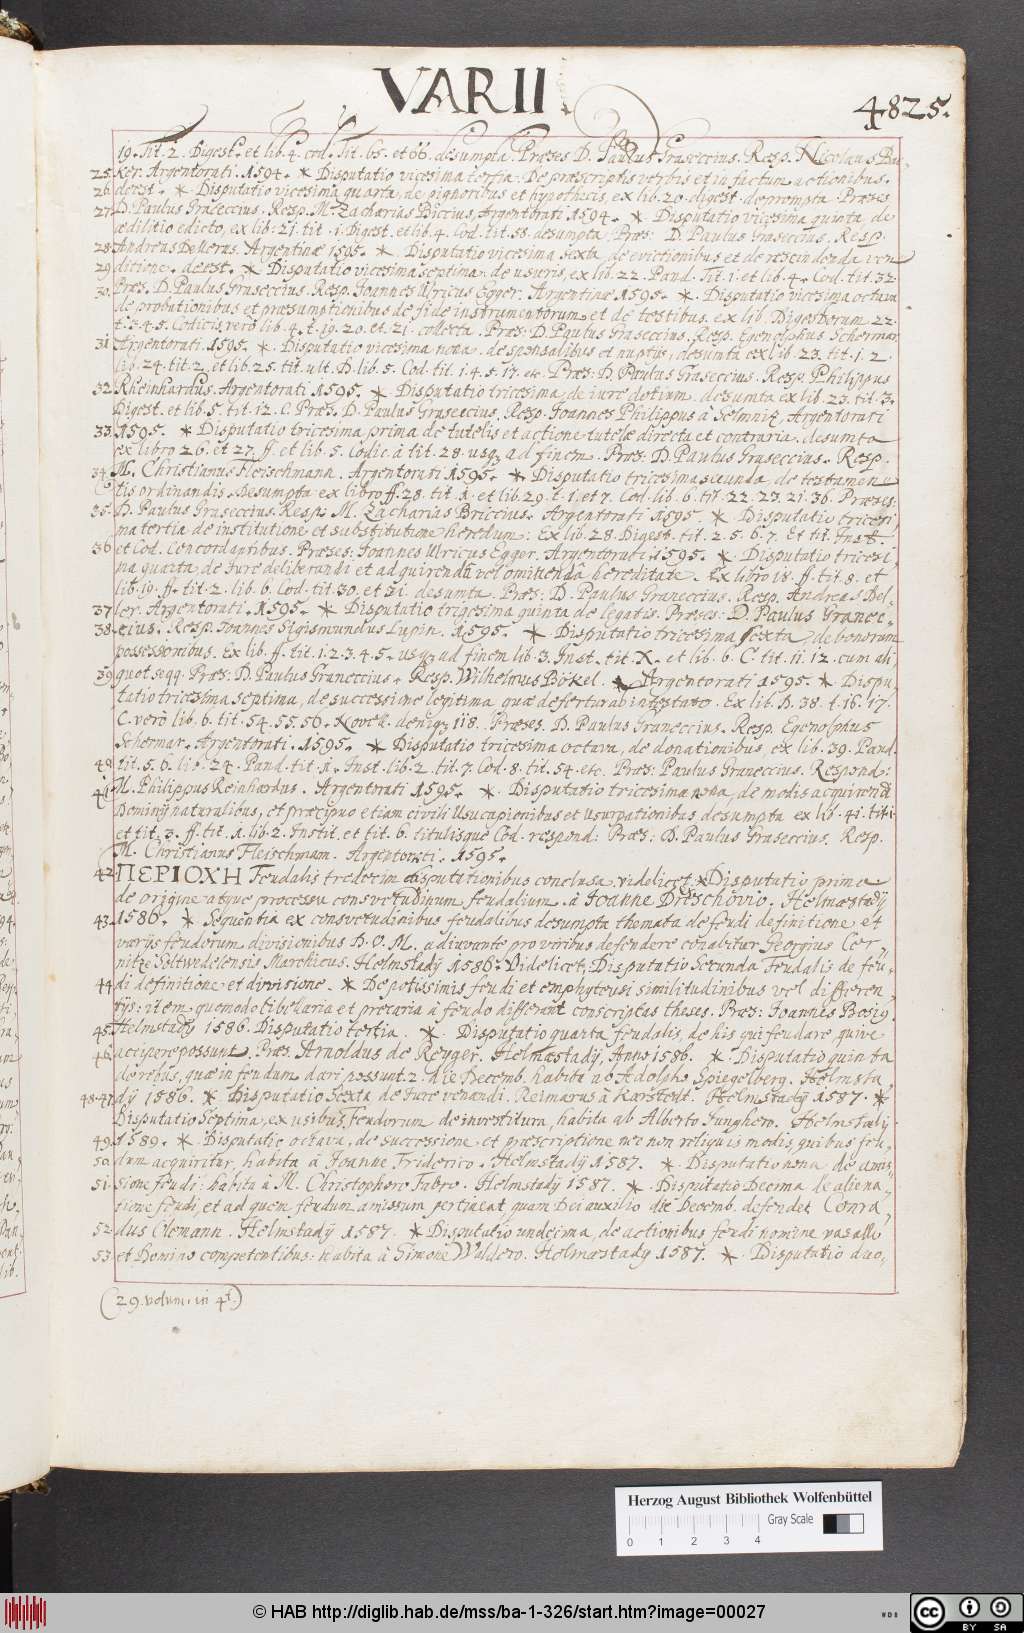 VARII
4825.
19. Tit. 2. Digest. et lib. 4. cod. Tit. 65. et 66. desumpta. Præses D. Paulus Graseccius. Resp. Nicolaus
25. ker. Argentorati. 1594. * Disputatio vicesima tertia. De præscriptis verbis et in factum actionibus.
26. deest. * Disputatio vicesima quarta, de pignoribus et hypothecis, ex lib. 20. digest. deprompta. Præses.
27. D. Paulus Graseccius. Resp. M. Zacharias Riccius, Argentorati 1594. * Disputatio vicesima quinta, de
ædilitio edicto, ex lib: 21. tit. 1. Digest. et lib. 4. Cod. tit. 58. desumpta, Præs: D. Paulus Graseccius, Resp.
28. Andreas Dellerus. Argentinæ 1595. * Disputatio vicesima sexta, de evictionibus et de rescindenda ven
29. ditione. deest. * Disputatio vicesima septima. de usuris, ex lib. 22. Pand. Tit. 1. et lib. 4. Cod. tit. 32.
30. Præs. D. Paulus Graseccius. Resp. Joannes Ulricus Egger. Argentinæ 1595. * Disputatio vicesima octava
de probationibus et præsumptionibus de fide instrumentorum et de testibus. ex lib. Digestorum 22.
t. 3. 4. 5. Codicis vero lib. 4. t. 19. 20. et. 21. collecta. Præs. D. Paulus Graseccius. Resp. Egenolphus Schermar.
31. Argentorati. 1595. * Disputatio vicesima nona. de sponsalibus et nuptijs, desumta ex lib. 23. tit. 1. 2.
lib. 24. tit. 2. et lib. 25. tit. ult. D. lib. 5. Cod. tit. 1. 4. 5. 17. etc. Præs: D. Paulus Graseccius. Resp. Philippus
32. Rheinhardus. Argentorati 1595. * Disputatio tricesima, de iure dotium. desumta ex lib. 23. tit. 3.
Digest. et lib. 5. tit. 12. C. Præs. D. Paulus Graseccius, Resp. Joannes Philippus à Selmniz. Argentorati
33. 1595. * Disputatio tricesima prima de tutelis et actione tutelæ directa et contraria. desumta
ex libro 26. et 27. ff. et lib. 5. Codic. à tit. 28. usq3 ad finem. Præs: D. Paulus Graseccius. Resp.
34. M. Christianus Fleischmann. Argentorati 1595. * Disputatio tricesima secunda de testamen
tis ordinandis. Desumpta ex libro ff. 28. tit. 1. et lib. 29. t. 1. et 7. Cod. lib. 6. tit. 22. 23. 21. 36. Præses.
35. D. Paulus Graseccius. Resp. M. Zacharias Briccius. Argentorati 1595. * Disputatio tricesi,
ma tertia de institutione et substitutione heredum: Ex lib. 28. Digest. tit. 2. 5. 6. 7. Et tit. Instt.
36. et Cod. Concordantibus. Præses: Joannes Ulricus Egger. Argentorati 1595. * Disputatio tricesi,
ma quarta de Jure deliberandi et adquirenda vel omittenda hereditate. Ex libro 18. ff. tit. 8. et
lib. 19. ff. tit. 2. lib. 6. Cod. tit. 30. et 31. desumta. Præs: D. Paulus Graneccius. Resp. Andreas Del-
37. ler. Argentorati. 1595. * Disputatio trigesima quinta de legatis. Præses: D. Paulus Granec-
38. cius. Resp. Joannes Sigismundus Lupin. 1595. * Disputatio tricesima sexta, de bonorum
possessionibus. Ex lib. ff. tit. 1. 2. 3. 4. 5. usq3 ad finem lib. 3. Inst. tit. X. et lib. 6. C. tit. 11. 12. cum ali
39. quot seqq. Præs: D. Paulus Graneccius. Resp. Wilhelmus Bökel. Argentorati 1595. * Dispu,
tatio tricesima septima, de successione legitima quæ defertur ab intestato. Ex lib. D. 38. t. 16. 17.
C. verò lib. 6. tit. 54. 55. 56. Novell. deniq3 118. Præses. D. Paulus Graneccius. Resp. Egenolphus
Schermar. Argentorati. 1595. * Disputatio tricesima octava, de donationibus, ex lib. 39. Pand.
40. tit. 5. 6. lib. 24. Pand. tit. 1. Inst. lib. 2. tit. 7. Cod. 8. tit. 54. etc. Præs: Paulus Graneccius. Respond:
41. M. Philippus Reinhardus. Argentorati 1595. * Disputatio tricesima nona, de modis acquirendi
Dominij naturalibus, et præcipuo etiam civili Usucapionibus et usurpationibus desumpta ex lib. 41. tit. 1.
et tit. 3. ff. tit. 1. lib. 2. Instit. et fit. 6. titulisque Cod. respond: Præs: D. Paulus Graseccius. Resp.
M. Christianus Fleischmam. Argentorati. 1595.
42. ΠΕΡΙΟΧΗ Feudalis tredecim disputationibus conclusa. videlicet, * Disputatio prima
de origine atque processu consvetudinum feudalium. à Joanne Dreschovio. Helmæstadij
43. 1586. * Sequentia ex consvetudinibus feudalibus desumpta themata de feudi definitione, et
varijs feudorum divisionibus D. O. M. adiuvante pro viribus defendere conabitur Georgius Cer,
nitze Soltwedelensis Marchicus. Helmstadij 1586. Videlicet, Disputatio Secunda Feudalis de feu-
44. di definitione et divisione. * De potissimis feudi et emphyteusi similitudinibus vel differen,
tijs: item quomodo libellaria et precaria à feudo differant conscriptas theses. Præs: Joannes Bosig
45. Helmstady 1586. Disputatio tertia. * Disputatio quarta feudalis, de his qui feudare, quive
46. accipere possunt. Præs. Arnoldus de Reyger. Helmæstadij, Anno 1586. * Disputatio quinta
de rebus, quæ in feudum dari possunt. 2. die Decemb. habita ab Adolpho Spiegelberg. Helmsta
48. 47. dij 1586. * Disputatio Sexta de Jure venandi. Reimarus à Karstedt. Helmstadij 1587. *
Disputatio Septima, ex usibus Feudorum de investitura, habita ab Alberto Junghero. Helmstadij
49. 1589. * Disputatio octava, de successione et præscriptione nec non reliquis modis, quibus feu-
50. dum acquiritur, habita à Joanne Friderico. Helmstadij 1587. * Disputatio nona de amis
51. sione feudi: habita à M. Christophoro Fabro. Helmstadij 1587. * Disputatio Decima de aliena,
tione feudi, et ad quem feudum amissum pertineat, quam Dei auxilio die Decemb. defendet Conra,
52. dus Clemann. Helmstadij 1587. * Disputatio undecima, de actionibus feudi nomine vasallo
53. et Domino competentibus: habita à Simone Waldero. Helmæstady 1587. * Disputatio duo,
(29. volum. in 4t.)
Herzog August Bibliothek Wolfenbüttel
Gray Scale
0 1 2 3 4
© HAB http://diglib.hab.de/mss/ba-1-326/start.htm?image=00027
WDB
cc BY SA